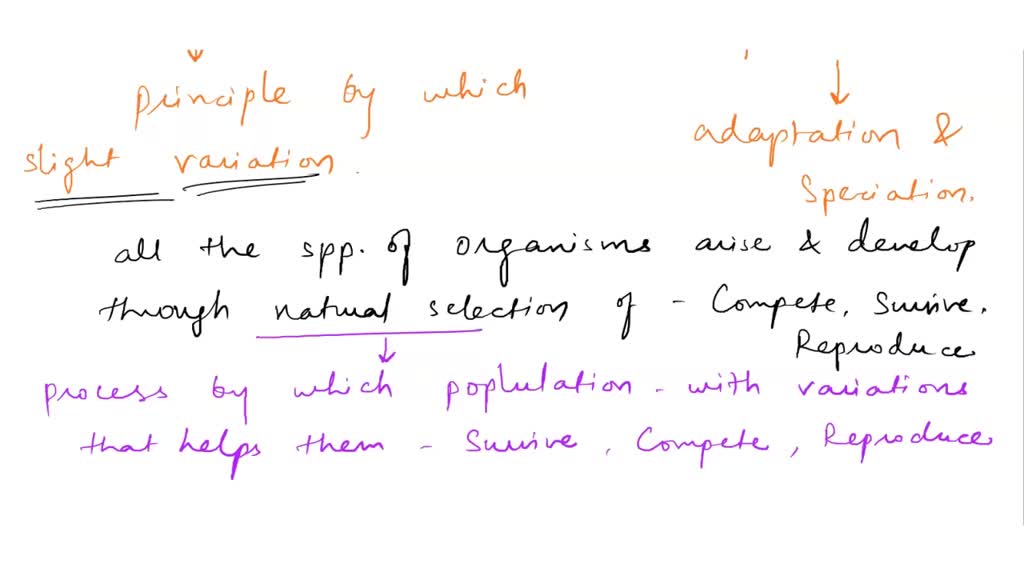 principle by which
slight variation.
adaptation &
Speciation.
all the spp. of organisms arise & develop
through natural selection of - Compete, Survive,
Reproduce
process by which poplulation - with variations
that helps them - Survive, Compete, Reproduce